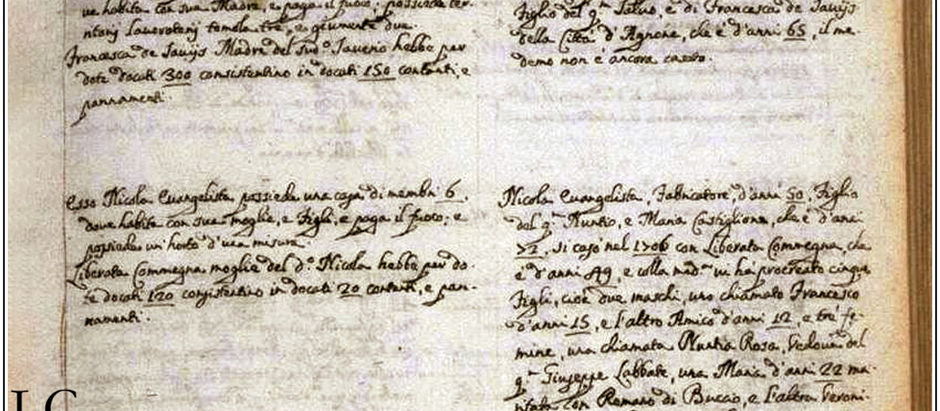 ve habita con sua Madre, e paga il fuoco; possiede ter-
ritorij lavoratorij tomola tre, e giumente due.
Francesca de Savijs Madre del sud.º Saverio hebbe per
dote docati 300 consistentino in docati 150 contanti, e
pannamenti.
Esso Nicola Evangelista possiede una casa di membri 6,
dove habita con sua moglie, e Figli, e paga il fuoco; e
possiede un horto d'una misura.
Liberata Commegna moglie del d.º Nicola hebbe per do-
te docati 120 consistentino in docati 20 contanti, e pan-
namenti.
Figlio del q.m Salvo, e di Francesca de Savijs
della Città d'Agnone, che è d'anni 65, il me-
demo non è ancora casato.
Nicola Evangelista, Fabricatore, d'anni 50, Figlio
del q.m Nuntio, e Maria Castiglione, che è d'anni
, si casò nel 1706 con Liberata Commegna, che
è d'anni 49, e colla med.ma vi ha procreato cinque
Figli, cioè due maschi, uno chiamato Francesco
d'anni 15, e l'altro Amico d'anni 12, e tre fe-
mine, una chiamata Nuntia Rosa, Vedova del
q.m Giuseppe Labbate, una Maria d'anni 22 ma-
ritata con Romano di Buccio, e l'altra Veroni-
LC